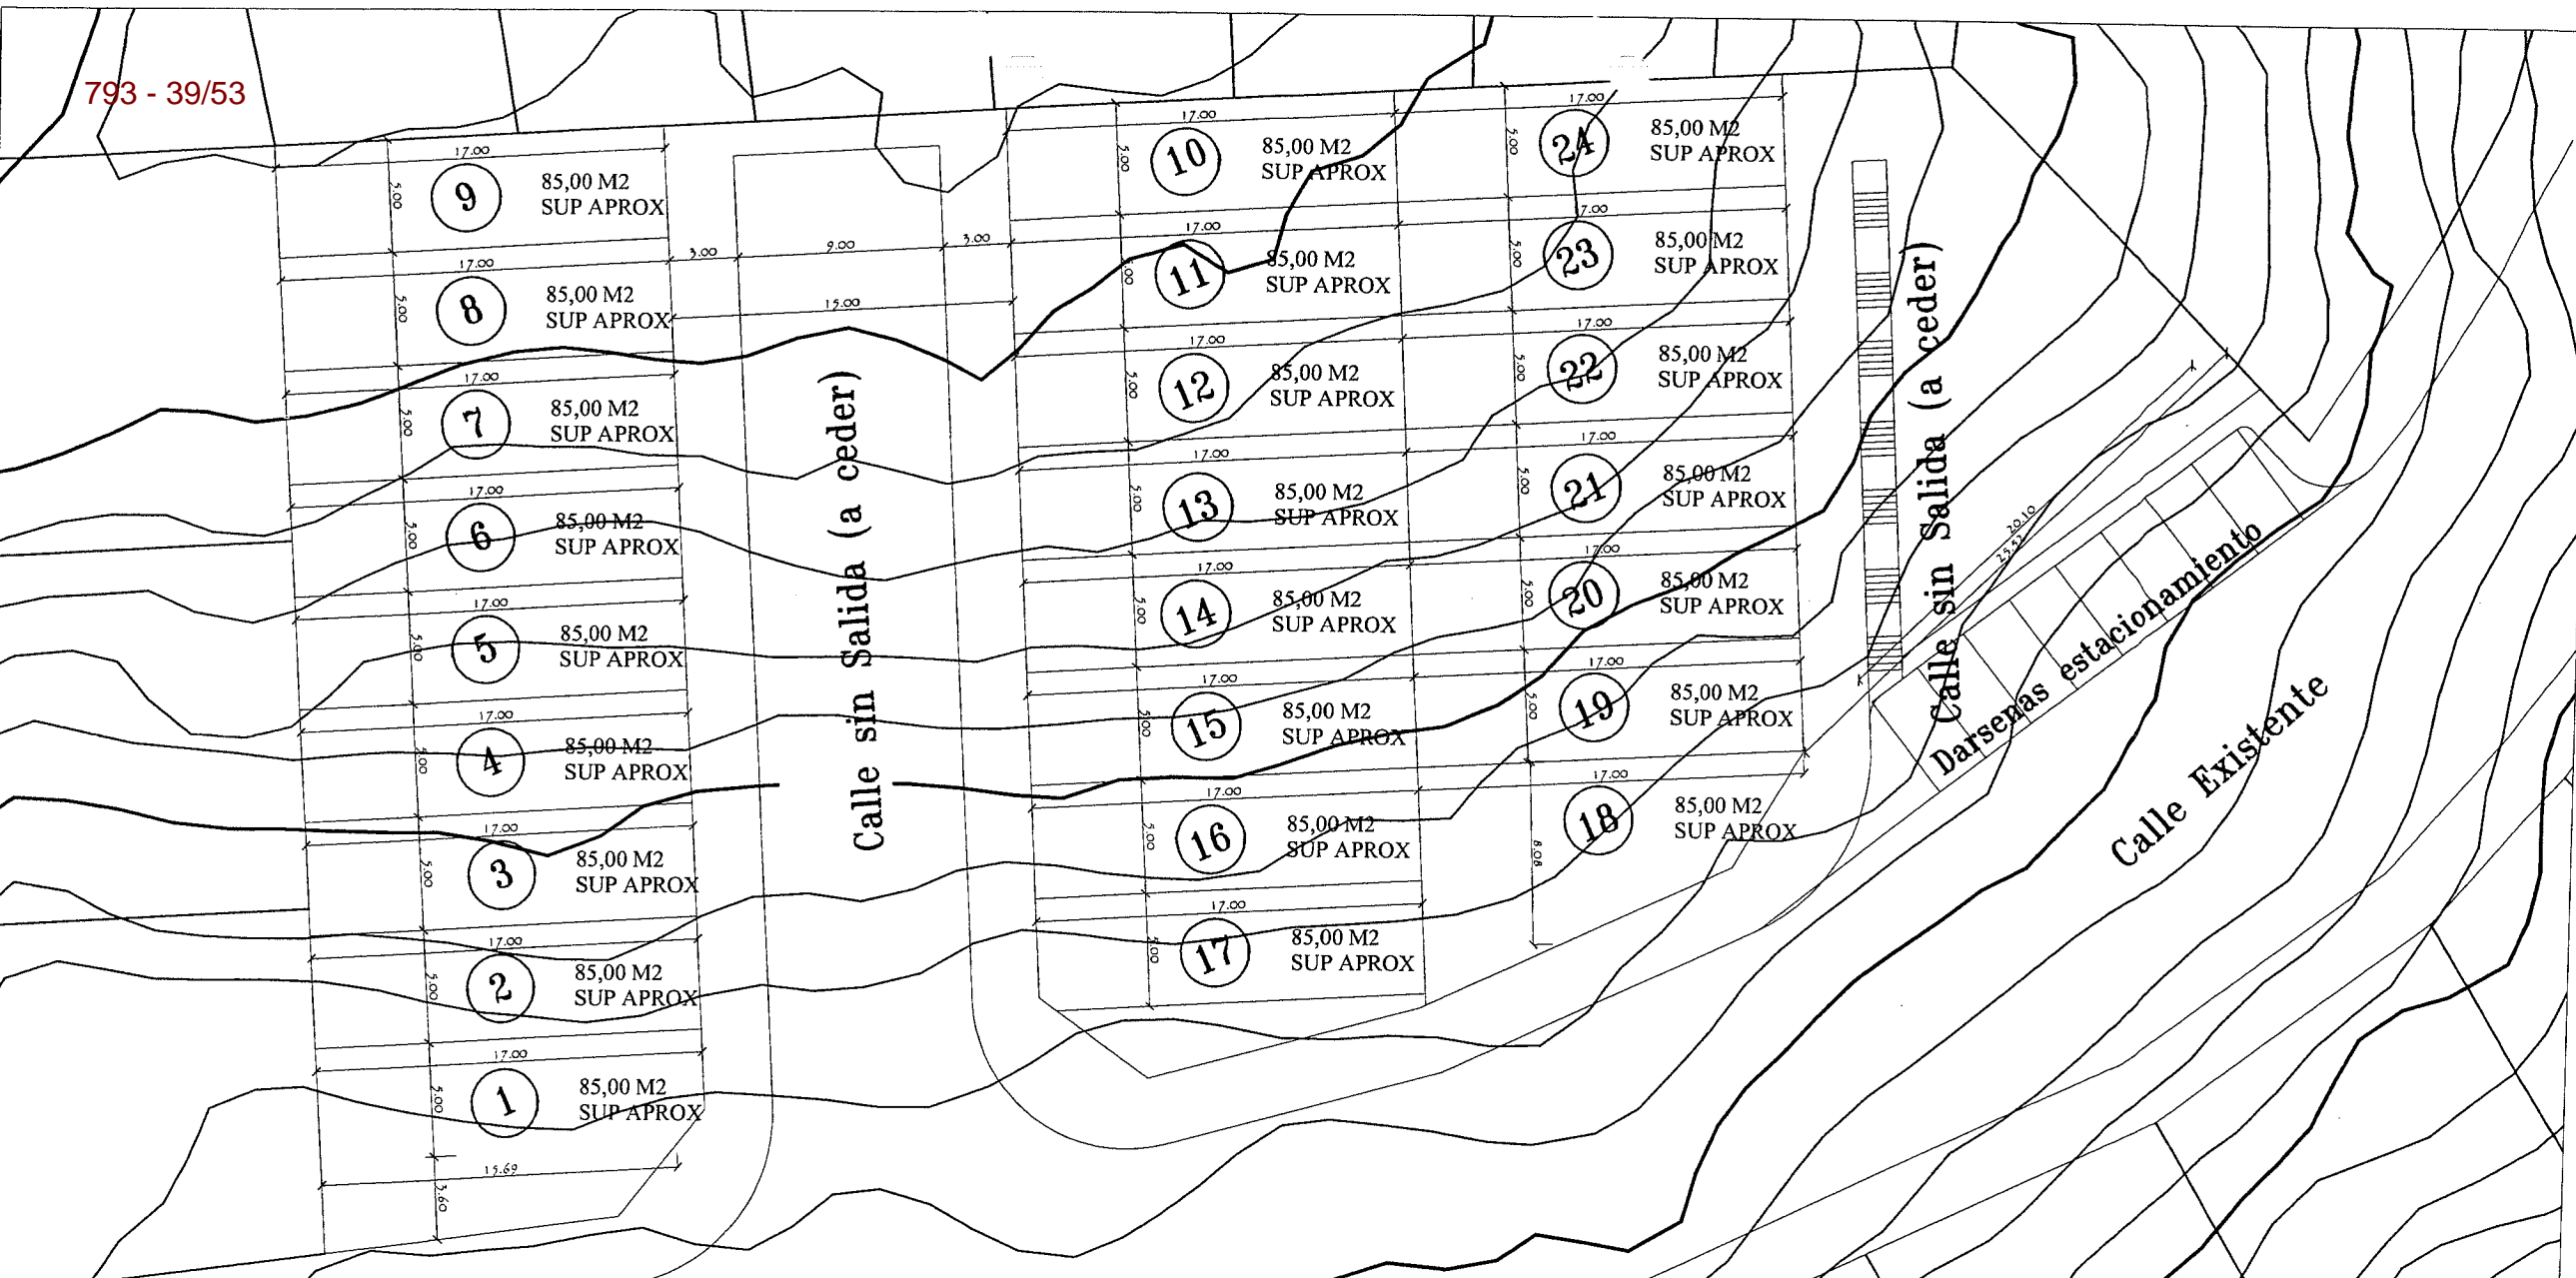 793 - 39/53
17.00
5.00
9
85,00 M2
SUP APROX
17.00
5.00
8
85,00 M2
SUP APROX
17.00
5.00
7
85,00 M2
SUP APROX
17.00
5.00
6
85,00 M2
SUP APROX
17.00
5.00
5
85,00 M2
SUP APROX
17.00
5.00
4
85,00 M2
SUP APROX
17.00
5.00
3
85,00 M2
SUP APROX
17.00
5.00
2
85,00 M2
SUP APROX
17.00
5.00
1
85,00 M2
SUP APROX
15.69
3.60
3.00
9.00
3.00
15.00
Calle sin Salida (a ceder)
17.00
5.00
10
85,00 M2
SUP APROX
17.00
5.00
11
85,00 M2
SUP APROX
17.00
5.00
12
85,00 M2
SUP APROX
17.00
5.00
13
85,00 M2
SUP APROX
17.00
5.00
14
85,00 M2
SUP APROX
17.00
5.00
15
85,00 M2
SUP APROX
17.00
5.00
16
85,00 M2
SUP APROX
17.00
5.00
17
85,00 M2
SUP APROX
17.00
5.00
24
85,00 M2
SUP APROX
17.00
5.00
23
85,00 M2
SUP APROX
17.00
5.00
22
85,00 M2
SUP APROX
17.00
5.00
21
85,00 M2
SUP APROX
17.00
5.00
20
85,00 M2
SUP APROX
17.00
5.00
19
85,00 M2
SUP APROX
17.00
8.08
18
85,00 M2
SUP APROX
Calle sin Salida (a ceder)
20.10
Darsenas estacionamiento
Calle Existente